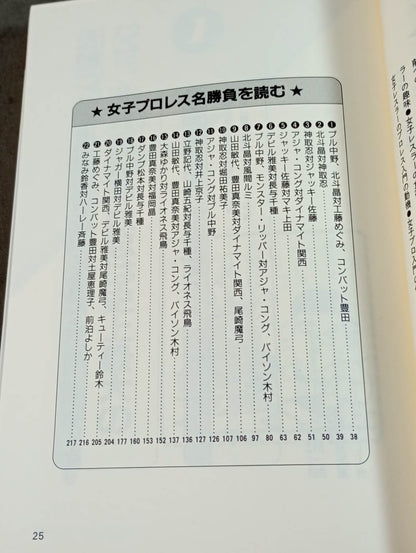 ラーの趣味●女子
女子レスラーのプロレス入門の動機●女子プロレス
★女子プロレス名勝負を読む★
❶ブル中野、北斗晶対工藤めぐみ、コンバット豊田 38
❷北斗晶対神取忍 39
❸神取忍対ジャッキー佐藤 50
❹アジャ・コング対ダイナマイト関西 51
❺ジャッキー佐藤対マキ上田 62
❻デビル雅美対長与千種 63
❼ブル中野、モンスター・リッパー対アジャ・コング、バイソン木村 80
❽北斗晶対風間ルミ 97
❾山田敏代、豊田真奈美対ダイナマイト関西、尾崎魔弓 106
❿神取忍対堀田祐美子 107
⓫アジャ・コング対ブル中野 126
⓬神取忍対井上京子 127
⓭立野記代、山崎五紀対長与千種、ライオネス飛鳥 136
⓮山田敏代、豊田真奈美対アジャ・コング、バイソン木村 137
⓯大森ゆかり対ライオネス飛鳥 152
⓰豊田真奈美対福岡晶 153
⓱ダンプ松本対長与千種 160
⓲ブル中野対デビル雅美 177
⓳ジャガー横田対デビル雅美 204
⓴ダイナマイト関西、デビル雅美対尾崎魔弓、キューティー鈴木 205
㉑工藤めぐみ、コンバット豊田対土屋恵理子、前泊よしか 216
㉒みなみ鈴香対ハーレー斉藤 217
25